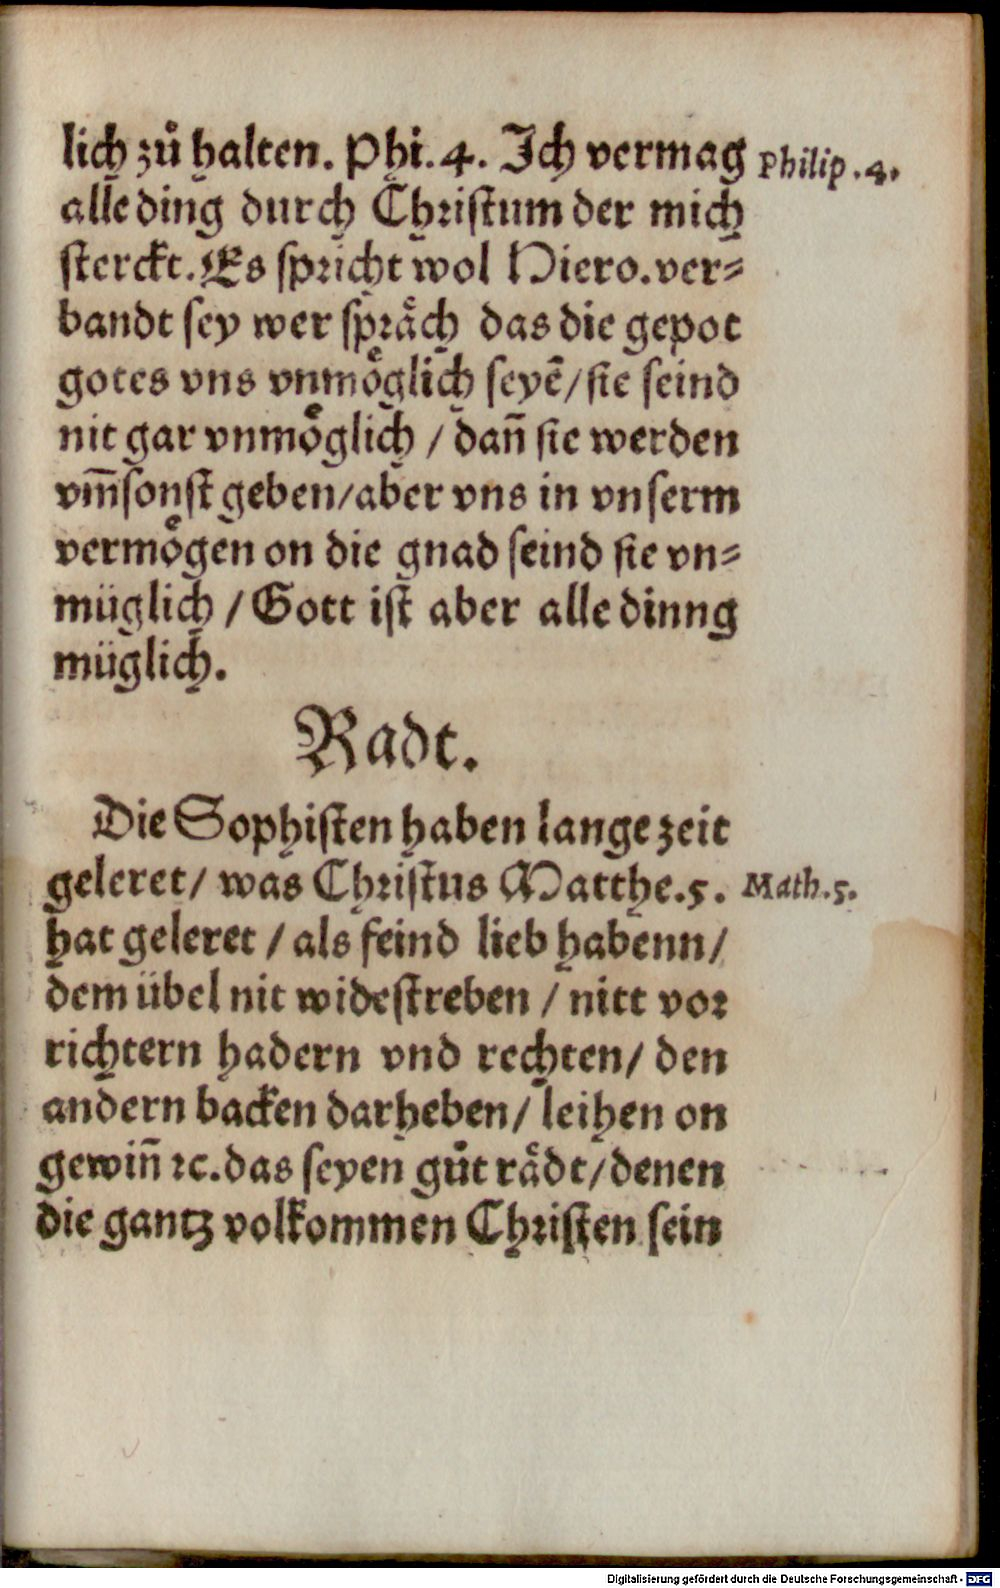 lich zů halten. Phi. 4. Ich vermag
Philip. 4.
alle ding durch Christum der mich
sterckt. Es spricht wol Hiero. ver⸗
bandt sey wer spräch das die gepot
gotes vns vnmöglich seyē / sie seind
nit gar vnmöglich / dañ sie werden
vm̄sonst geben / aber vns in vnserm
vermögen on die gnad seind sie vn⸗
müglich / Gott ist aber alle dinng
müglich.
Radt.
Die Sophisten haben lange zeit
geleret / was Christus Matthe. 5.
Math. 5.
hat geleret / als feind lieb habenn /
dem übel nit widestreben / nitt vor
richtern hadern vnd rechten / den
andern backen darheben / leihen on
gewiñ ꝛc. das seyen gůt rädt / denen
die gantz volkommen Christen sein
Digitalisierung gefördert durch die Deutsche Forschungsgemeinschaft - DFG